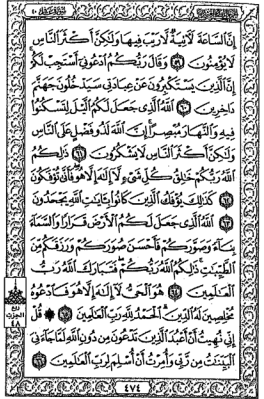 إِنَّ ٱلسَّاعَةَ لَأٓتِيَةٌ لَّا رَيْبَ فِيهَا وَلَٰكِنَّ أَكْثَرَ ٱلنَّاسِ
لَا يُؤْمِنُونَ ٥٩ وَقَالَ رَبُّكُمُ ٱدْعُونِىٓ أَسْتَجِبْ لَكُمْ
إِنَّ ٱلَّذِينَ يَسْتَكْبِرُونَ عَنْ عِبَادَتِى سَيَدْخُلُونَ جَهَنَّمَ
دَاخِرِينَ ٦٠ ٱللَّهُ ٱلَّذِى جَعَلَ لَكُمُ ٱلَّيْلَ لِتَسْكُنُوا۟
فِيهِ وَٱلنَّهَارَ مُبْصِرًا إِنَّ ٱللَّهَ لَذُو فَضْلٍ عَلَى ٱلنَّاسِ
وَلَٰكِنَّ أَكْثَرَ ٱلنَّاسِ لَا يَشْكُرُونَ ٦١ ذَٰلِكُمُ
ٱللَّهُ رَبُّكُمْ خَٰلِقُ كُلِّ شَىْءٍ لَّآ إِلَٰهَ إِلَّا هُوَ فَأَنَّىٰ تُؤْفَكُونَ
٦٢ كَذَٰلِكَ يُؤْفَكُ ٱلَّذِينَ كَانُوا۟ بِـَٔايَٰتِ ٱللَّهِ يَجْحَدُونَ
٦٣ ٱللَّهُ ٱلَّذِى جَعَلَ لَكُمُ ٱلْأَرْضَ قَرَارًا وَٱلسَّمَآءَ
بِنَآءً وَصَوَّرَكُمْ فَأَحْسَنَ صُوَرَكُمْ وَرَزَقَكُم مِّنَ
ٱلطَّيِّبَٰتِ ذَٰلِكُمُ ٱللَّهُ رَبُّكُمْ فَتَبَارَكَ ٱللَّهُ رَبُّ
ٱلْعَٰلَمِينَ ٦٤ هُوَ ٱلْحَىُّ لَآ إِلَٰهَ إِلَّا هُوَ فَٱدْعُوهُ
مُخْلِصِينَ لَهُ ٱلدِّينَ ٱلْحَمْدُ لِلَّهِ رَبِّ ٱلْعَٰلَمِينَ ٦٥ ۞ قُلْ
إِنِّى نُهِيتُ أَنْ أَعْبُدَ ٱلَّذِينَ تَدْعُونَ مِن دُونِ ٱللَّهِ لَمَّا جَآءَنِىَ
ٱلْبَيِّنَٰتُ مِن رَّبِّى وَأُمِرْتُ أَنْ أُسْلِمَ لِرَبِّ ٱلْعَٰلَمِينَ ٦٦
ربع
الحزب
٤٨
٤٧٤